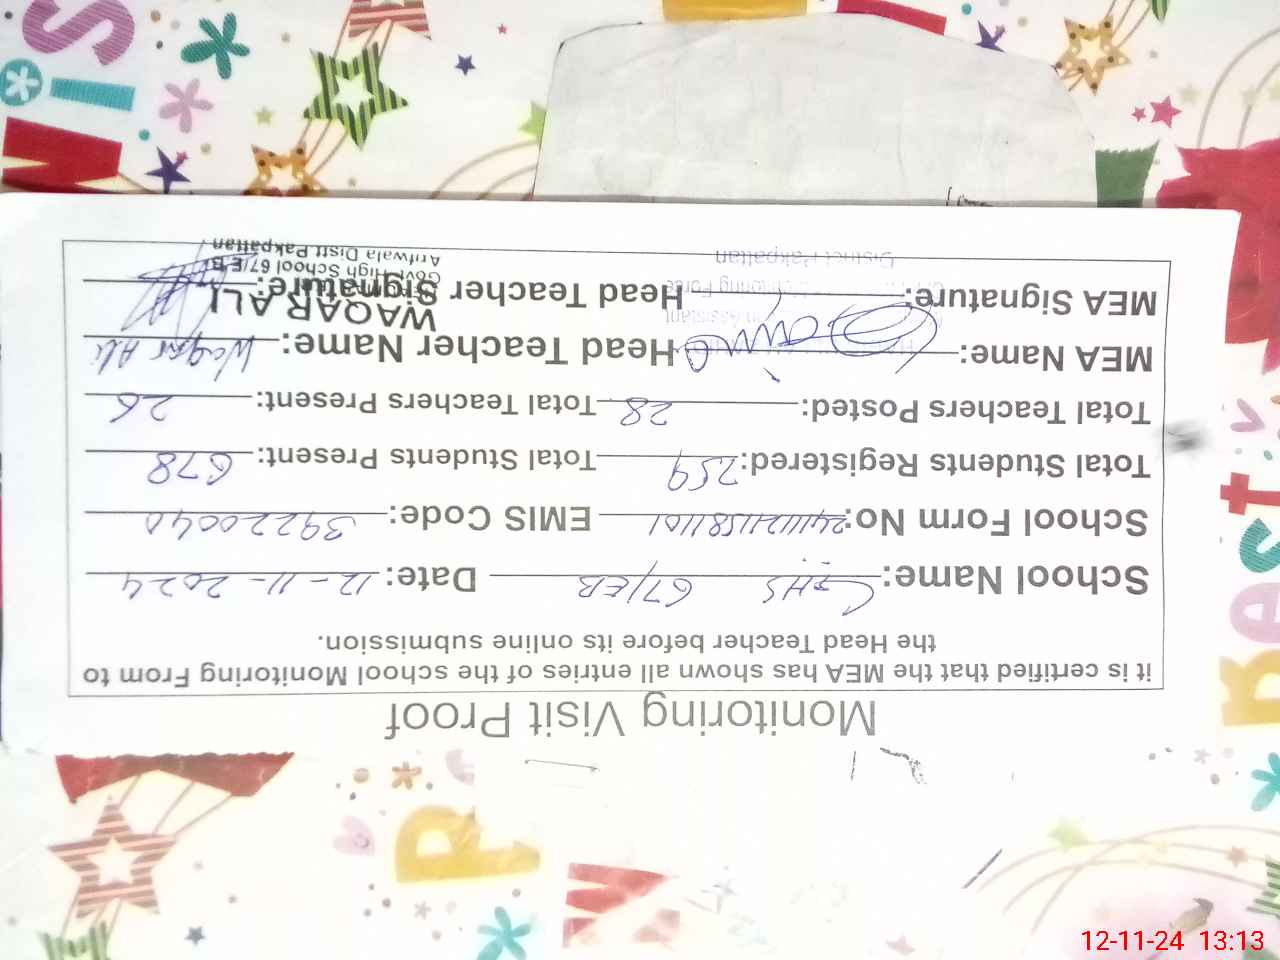 Monitoring Visit Proof
it is certified that the MEA has shown all entries of the school Monitoring From to
the Head Teacher before its online submission.
School Name: GHS 67/EB Date: 12-11-2024
School Form No: EMIS Code: 39220040
Total Students Registered: 759 Total Students Present: 678
Total Teachers Posted: 28 Total Teachers Present: 26
MEA Name: Head Teacher Name: Waqar Ali
MEA Signature: Head Teacher Signature:
WAQAR ALI
Govt. High School 67/E.B
Arifwala Distt Pakpattan
District Pakpattan
12-11-24 13:13